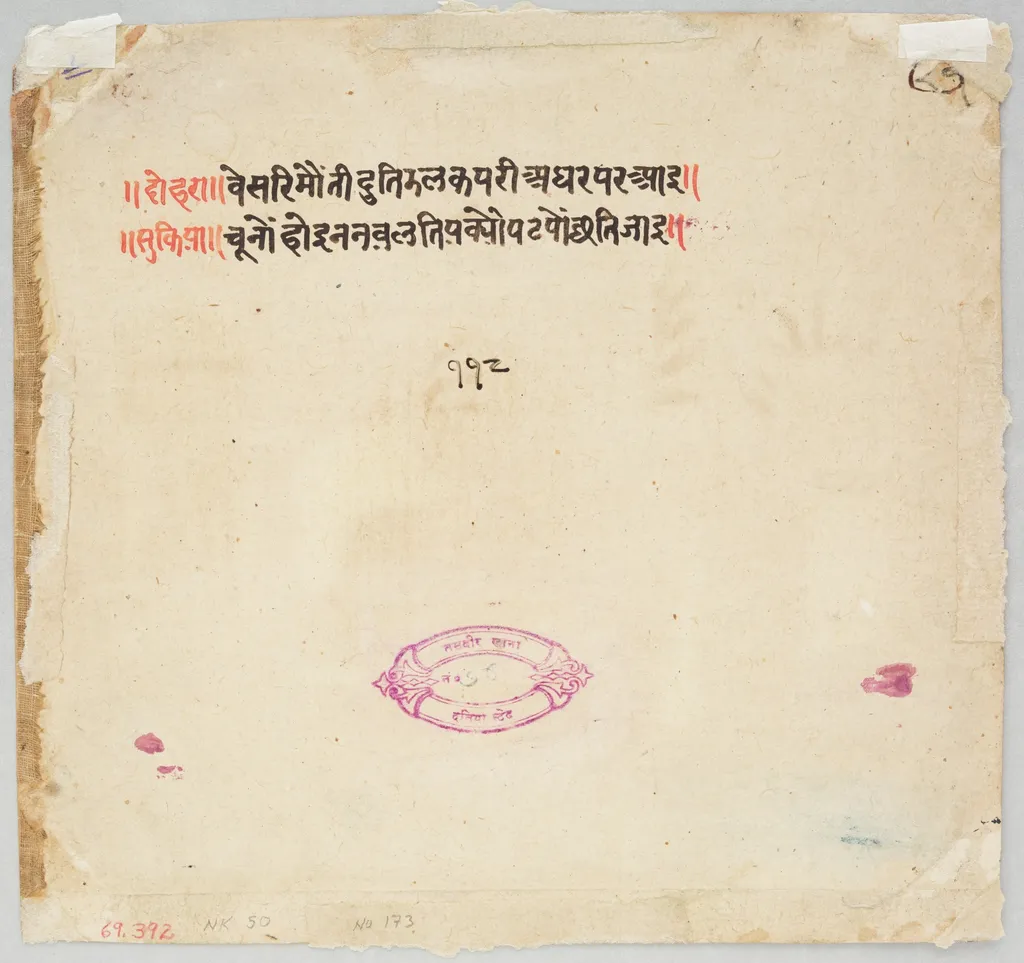 ॥दोहरा॥वेसरिमोंतीदुतिझलकपरीअधरपरआइ॥
॥सुकिया॥चूनोंहोइननवलतियक्योपटपोंछतिजाइ॥
११८
तसवीर खाना
नं॰
दतिया स्टेट
69.392 NK 50 No 173